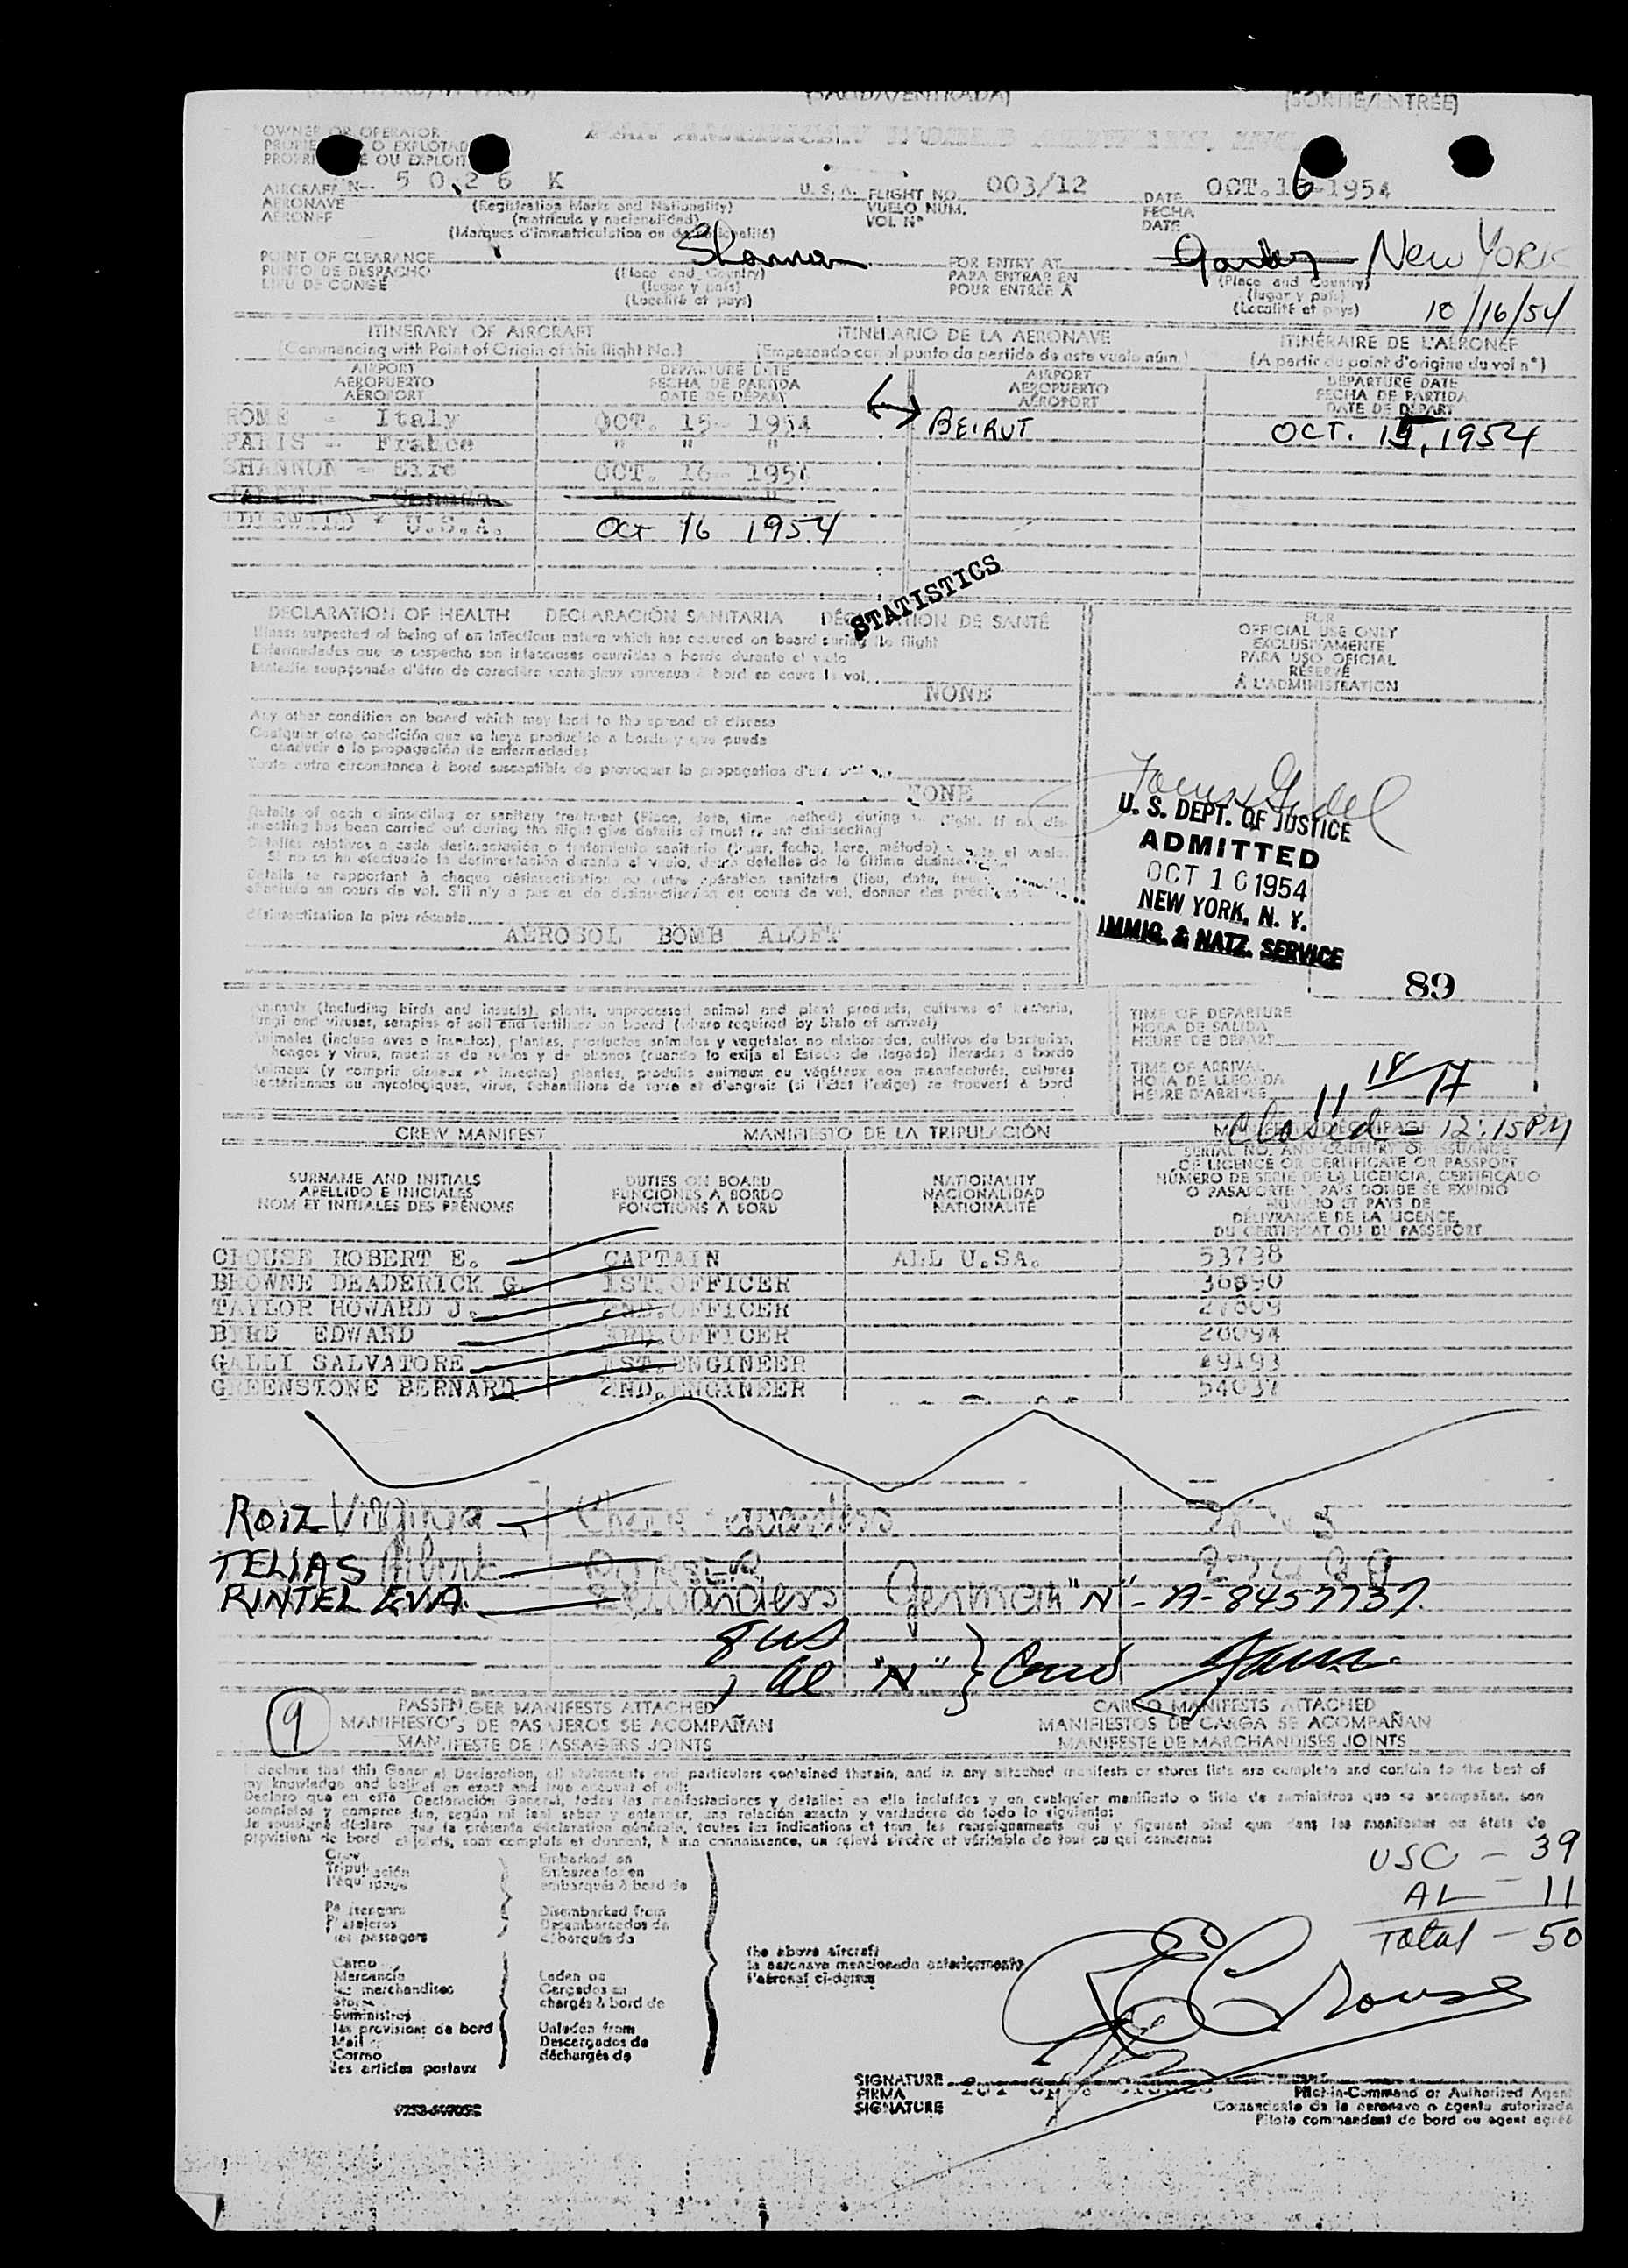 (SALIDA/ENTRADA) (SORTIE/ENTRÉE)
OWNER OR OPERATOR
AIRCRAFT N-- 5 0 2 6 K U. S. A. FLIGHT NO. 003/12 DATE OCT. 16-1954
AERONAVE (Registration Marks and Nationality) VUELO NÚM. FECHA
AERONEF (matrícula y nacionalidad) VOL N° DATE
(Marques d'immatriculation ou de nationalité)
POINT OF CLEARANCE Shannon FOR ENTRY AT New YORK
PUNTO DE DESPACHO (Place and Country) PARA ENTRAR EN (Place and Country)
LIEU DE CONGÉ (lugar y país) POUR ENTRÉE À (lugar y país)
(Localité et pays) (Localité et pays) 10/16/54
ITINERARY OF AIRCRAFT ITINERARIO DE LA AERONAVE ITINÉRAIRE DE L'AÉRONEF
(Commencing with Point of Origin of this flight No.) (Empezando con el punto de partida de este vuelo núm.) (A partir du point d'origine du vol n°)
AIRPORT DEPARTURE DATE AIRPORT DEPARTURE DATE
AEROPUERTO FECHA DE PARTIDA AEROPUERTO FECHA DE PARTIDA
AÉROPORT DATE DE DÉPART AÉROPORT DATE DE DÉPART
ROME - Italy OCT. 15- 1954 BEIRUT OCT. 15, 1954
PARIS - France " " "
SHANNON - Eire OCT. 16- 1954
IDLEWILD - U.S.A. Oct 16 1954
STATISTICS
DECLARATION OF HEALTH DECLARACIÓN SANITARIA DÉCLARATION DE SANTÉ
FOR
OFFICIAL USE ONLY
EXCLUSIVAMENTE
PARA USO OFICIAL
RÉSERVÉ
À L'ADMINISTRATION
Illness suspected of being of an infectious nature which has occured on board during the flight
Enfermedades que se sospecha son infecciosas ocurridas a bordo durante el vuelo
Maladie soupçonnée d'être de caractère contagieux survenue à bord en cours de vol
NONE
Any other condition on board which may lead to the spread of disease
Cualquier otra condición que se haya producido a bordo y que pueda
conducir a la propagación de enfermedades
Toute autre circonstance à bord susceptible de provoquer la propagation d'une
NONE
Details of each disinsecting or sanitary treatment (Place, date, time method) during the flight. If no dis-
insecting has been carried out during the flight give details of most recent disinsecting
Detalles relativos a cada desinsectación o tratamiento sanitario (lugar, fecha, hora, método) el vuelo
Si no se ha efectuado la desinsectación durante el vuelo, dense detalles de la última
désinsectisation la plus récente
AEROSOL BOMB ALOFT
U. S. DEPT. OF JUSTICE
ADMITTED
OCT 16 1954
NEW YORK, N. Y.
IMMIG. & NATZ. SERVICE
89
Animals (including birds and insects), plants, unprocessed animal and plant products, cultures of bacteria,
fungi and viruses, samples of soil and fertilizer on board (where required by State of arrival)
Animales (incluso aves e insectos), plantas, productos animales y vegetales no elaborados, cultivos de bacterias,
hongos y virus, muestras de suelos y de abonos (cuando lo exija el Estado de llegada) llevados a bordo
Animaux (y compris oiseaux et insectes) plantes, produits animaux ou végétaux non manufacturés, cultures
bactériennes ou mycologiques, virus, échantillons de terre et d'engrais (si l'État l'exige) se trouvant à bord
TIME OF DEPARTURE
HORA DE SALIDA
HEURE DE DÉPART
TIME OF ARRIVAL
HORA DE LLEGADA
HEURE D'ARRIVÉE 11
Closed - 12:15 PM
CREW MANIFEST MANIFIESTO DE LA TRIPULACIÓN
SURNAME AND INITIALS DUTIES ON BOARD NATIONALITY SERIAL NO. AND COUNTRY OF ISSUANCE
APELLIDO E INICIALES FUNCIONES A BORDO NACIONALIDAD OF LICENCE OR CERTIFICATE OR PASSPORT
NOM ET INITIALES DES PRÉNOMS FONCTIONS À BORD NATIONALITÉ NÚMERO DE SERIE DE LA LICENCIA, CERTIFICADO
O PASAPORTE Y PAÍS DONDE SE EXPIDIÓ
NUMÉRO ET PAYS DE
DÉLIVRANCE DE LA LICENCE,
DU CERTIFICAT OU DU PASSEPORT
CROUSE ROBERT E. CAPTAIN ALL U.SA. 53798
BROWNE DEADERICK G. 1ST.OFFICER 36690
TAYLOR HOWARD J. 2ND.OFFICER 27809
BYRD EDWARD 3RD.OFFICER 20094
GALLI SALVATORE 1ST.ENGINEER 49193
GREENSTONE BERNARD 2ND.ENGINEER 54037
ROIZ Virginia
TELIAS Albert PURSER
RINTEL EVA German "N" - A-8457737
8 US
1 al "N" }
9
PASSENGER MANIFESTS ATTACHED CARGO MANIFESTS ATTACHED
MANIFIESTOS DE PASAJEROS SE ACOMPAÑAN MANIFIESTOS DE CARGA SE ACOMPAÑAN
MANIFESTE DE PASSAGERS JOINTS MANIFESTE DE MARCHANDISES JOINTS
I declare that this General Declaration, all statements and particulars contained therein, and in any attached manifests or stores lists are complete and contain to the best of
my knowledge and belief an exact and true account of all:
Declaro que en esta Declaración General, todas las manifestaciones y detalles en ella incluidos y en cualquier manifiesto o lista de suministros que se acompañan, son
completos y comprenden, según mi leal saber y entender, una relación exacta y verdadera de todo lo siguiente:
Je soussigné déclare que la présente déclaration générale, toutes les indications et tous les renseignements qui y figurent ainsi que dans les manifestes ou états de
provisions de bord ci-joints, sont complets et donnent, à ma connaissance, un relevé sincère et véritable de tout ce qui concerne:
USC - 39
AL - 11
Total - 50
Crew Embarked on
Tripulación Embarcados en
l'équipage embarqués à bord de
Passengers Disembarked from
Pasajeros Desembarcados de
les passagers débarqués de
the above aircraft
la aeronave mencionada anteriormente
l'aéronef ci-dessus
Cargo
Mercancía Laden on
les merchandises Cargados en
Stores chargés à bord de
Suministros
les provisions de bord Unladen from
Mail Descargados de
Correo déchargés de
les articles postaux
R E Crouse
SIGNATURE Pilot-in-Command or Authorized Agent
FIRMA Comandante de la aeronave o agente autorizado
SIGNATURE Pilote commandant de bord ou agent agréé